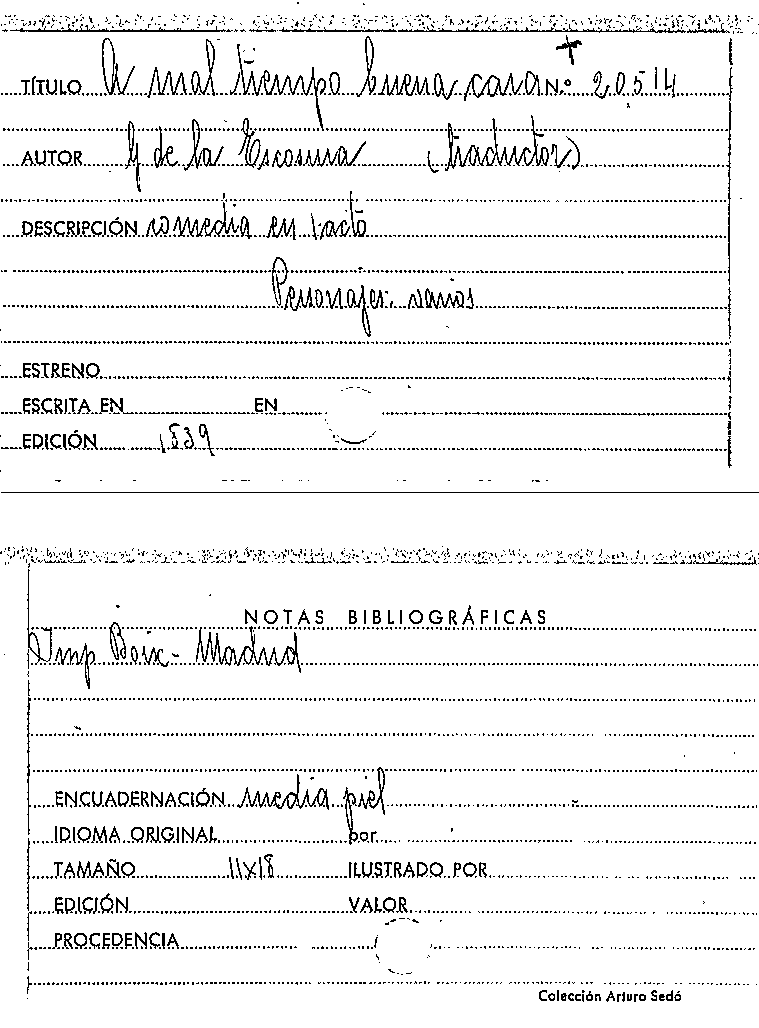 TÍTULO A mal tiempo buena cara N.º 20514
AUTOR G de la Escosura (traductor)
DESCRIPCIÓN comedia en 1 acto
Personajes: varios
ESTRENO
ESCRITA EN EN
EDICIÓN 1839
NOTAS BIBLIOGRÁFICAS
Imp Boix - Madrid
ENCUADERNACIÓN media piel
IDIOMA ORIGINAL por
TAMAÑO 11x18 ILUSTRADO POR
EDICIÓN VALOR
PROCEDENCIA
Colección Arturo Sedó